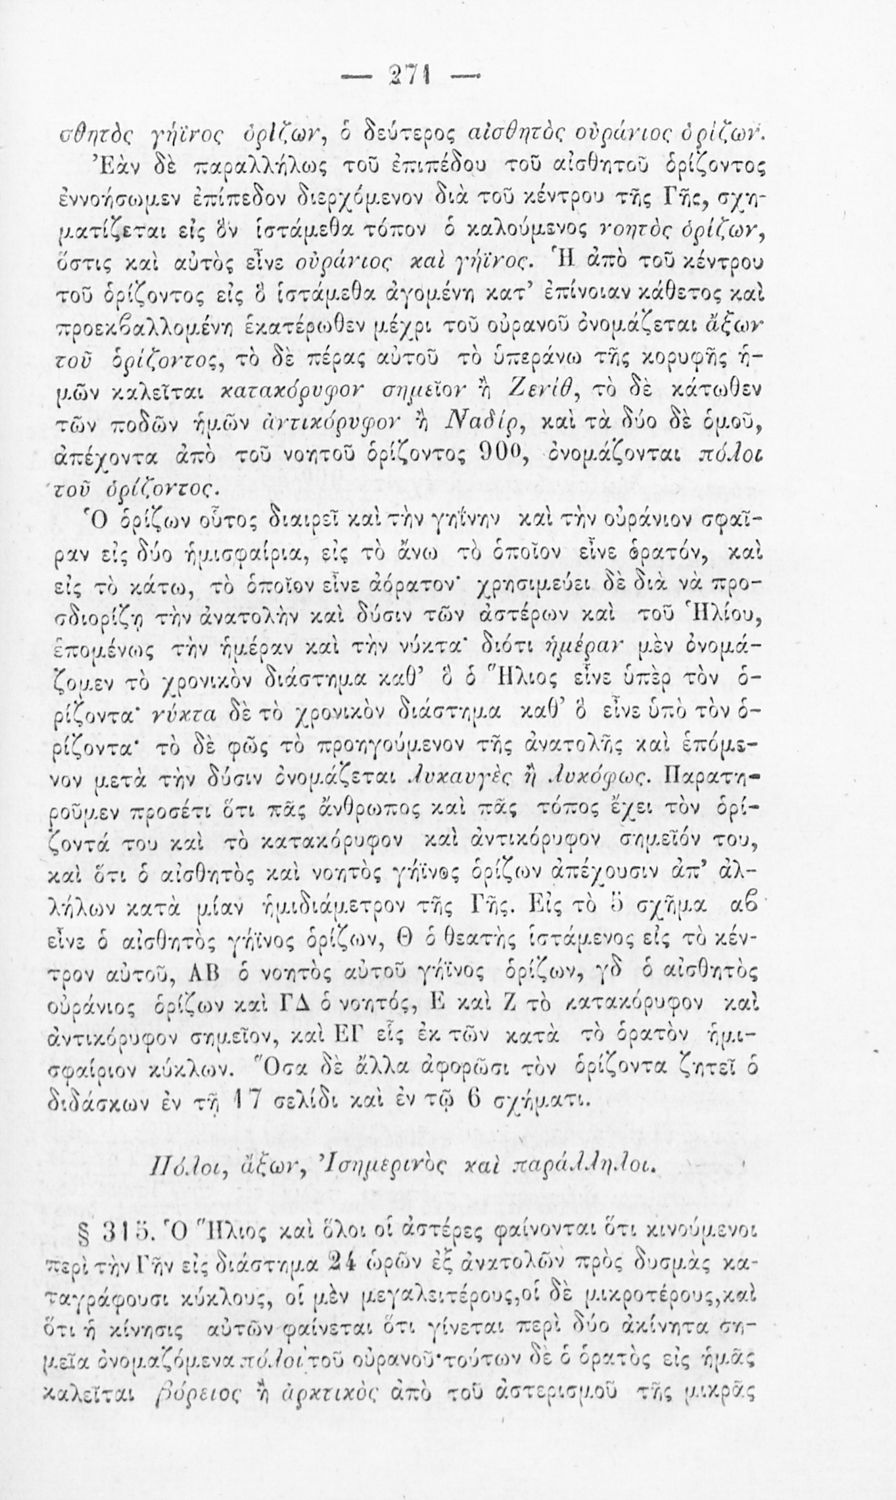 — 271 —
σθητὸς γήϊνος ὁρίζων, ὁ δεύτερος αἰσθητὸς οὐράνιος ὁρίζων.
Ἐὰν δὲ παραλλήλως τοῦ ἐπιπέδου τοῦ αἰσθητοῦ ὁρίζοντος
ἐννοήσωμεν ἐπίπεδον διερχόμενον διὰ τοῦ κέντρου τῆς Γῆς, σχη-
ματίζεται εἰς ὃν ἱστάμεθα τόπον ὁ καλούμενος νοητὸς ὁρίζων,
ὅστις καὶ αὐτὸς εἶνε οὐράνιος καὶ γήϊνος. Ἡ ἀπὸ τοῦ κέντρου
τοῦ ὁρίζοντος εἰς ὃ ἱστάμεθα ἀγομένη κατ’ ἐπίνοιαν κάθετος καὶ
προεκβαλλομένη ἑκατέρωθεν μέχρι τοῦ οὐρανοῦ ὀνομάζεται ἄξων
τοῦ ὁρίζοντος, τὸ δὲ πέρας αὐτοῦ τὸ ὑπεράνω τῆς κορυφῆς ἡ-
μῶν καλεῖται κατακόρυφον σημεῖον ἢ Ζενίθ, τὸ δὲ κάτωθεν
τῶν ποδῶν ἡμῶν ἀντικόρυφον ἢ Ναδίρ, καὶ τὰ δύο δὲ ὁμοῦ,
ἀπέχοντα ἀπὸ τοῦ νοητοῦ ὁρίζοντος 90ο, ὀνομάζονται πόλοι
τοῦ ὁρίζοντος.
Ὁ ὁρίζων οὗτος διαιρεῖ καὶ τὴν γηΐνην καὶ τὴν οὐράνιον σφαῖ-
ραν εἰς δύο ἡμισφαίρια, εἰς τὸ ἄνω τὸ ὁποῖον εἶνε ὁρατόν, καὶ
εἰς τὸ κάτω, τὸ ὁποῖον εἶνε ἀόρατον· χρησιμεύει δὲ διὰ νὰ προ-
σδιορίζῃ τὴν ἀνατολὴν καὶ δύσιν τῶν ἀστέρων καὶ τοῦ Ἡλίου,
ἑπομένως τὴν ἡμέραν καὶ τὴν νύκτα· διότι ἡμέραν μὲν ὀνομά-
ζομεν τὸ χρονικὸν διάστημα καθ’ ὃ ὁ Ἥλιος εἶνε ὑπὲρ τὸν ὁ-
ρίζοντα· νύκτα δὲ τὸ χρονικὸν διάστημα καθ’ ὃ εἶνε ὑπὸ τὸν ὁ-
ρίζοντα· τὸ δὲ φῶς τὸ προηγούμενον τῆς ἀνατολῆς καὶ ἑπόμε-
νον μετὰ τὴν δύσιν ὀνομάζεται Λυκαυγὲς ἢ Λυκόφως. Παρατη-
ροῦμεν προσέτι ὅτι πᾶς ἄνθρωπος καὶ πᾶς τόπος ἔχει τὸν ὁρί-
ζοντά του καὶ τὸ κατακόρυφον καὶ ἀντικόρυφον σημεῖόν του,
καὶ ὅτι ὁ αἰσθητὸς καὶ νοητὸς γήϊνος ὁρίζων ἀπέχουσιν ἀπ’ ἀλ-
λήλων κατὰ μίαν ἡμιδιάμετρον τῆς Γῆς. Εἰς τὸ 5 σχῆμα αβ
εἶνε ὁ αἰσθητὸς γήϊνος ὁρίζων, Θ ὁ θεατὴς ἱστάμενος εἰς τὸ κέν-
τρον αὐτοῦ, ΑΒ ὁ νοητὸς αὐτοῦ γήϊνος ὁρίζων, γδ ὁ αἰσθητὸς
οὐράνιος ὁρίζων καὶ ΓΔ ὁ νοητός, Ε καὶ Ζ τὸ κατακόρυφον καὶ
ἀντικόρυφον σημεῖον, καὶ ΕΓ εἷς ἐκ τῶν κατὰ τὸ ὁρατὸν ἡμι-
σφαίριον κύκλων. Ὅσα δὲ ἄλλα ἀφορῶσι τὸν ὁρίζοντα ζητεῖ ὁ
διδάσκων ἐν τῇ 17 σελίδι καὶ ἐν τῷ 6 σχήματι.
Πόλοι, ἄξων, Ἰσημερινὸς καὶ παράλληλοι.
§ 315. Ὁ Ἥλιος καὶ ὅλοι οἱ ἀστέρες φαίνονται ὅτι κινούμενοι
περὶ τὴν Γῆν εἰς διάστημα 24 ὡρῶν ἐξ ἀνατολῶν πρὸς δυσμὰς κα-
ταγράφουσι κύκλους, οἱ μὲν μεγαλειτέρους,οἱ δὲ μικροτέρους,καὶ
ὅτι ἡ κίνησις αὐτῶν φαίνεται ὅτι γίνεται περὶ δύο ἀκίνητα ση-
μεῖα ὀνομαζόμενα πόλοι τοῦ οὐρανοῦ·τούτων δὲ ὁ ὁρατὸς εἰς ἡμᾶς
καλεῖται βόρειος ἢ ἀρκτικὸς ἀπὸ τοῦ ἀστερισμοῦ τῆς μικρᾶς